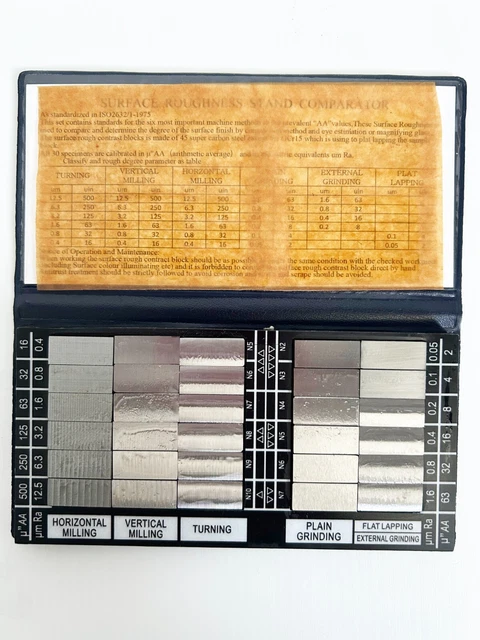 SURFACE ROUGHNESS STAND COMPARATOR
As standardized in ISO2632/1-1975
This set contains standards for the six most important machine
equivalent "AA"values,These Surface
used to compare and determine the degree of the surface finish by
method and eye estimation or magnifying
surface rough contrast blocks is made of 45 super carbon steel
which is use to plat lapping the
30 specimens are calibrated in μ"AA (arithmetic average) and
equivalents um Ra.
Classify and rough degree parameter in table
TURNING VERTICAL MILLING HORIZONTAL MILLING
EXTERNAL GRINDING FLAT LAPPING
um uin um uin um uin
12.5 500 12.5 500 12.5 500
6.3 250 6.3 250 6.3 250
3.2 125 3.2 125 3.2 125
1.6 63 1.6 63 1.6 63
0.8 32 0.8 32 0.8 32
0.4 16 0.4 16 0.4 16
um uin um
1.6 63
0.8 32
0.4 16
0.2 8
0.1
0.05
of Operation and Maintenance:
When working the surface rough contrast block should be as
the same condition with the checked
including Surface colour illuminating and it is forbidden to
surface rough contrast block direct by hand
treatment should be strictly followed to avoid corrosion
scrape should be avoided.
16 0.4 N5 N2 0.05 2
32 0.8 N6 N3 0.1 4
63 1.6 N7 N4 0.2 8
125 3.2 N8 N5 0.4 16
250 6.3 N9 N6 0.8 32
500 12.5 N10 N7 1.6 63
μ"AA μm Ra μm Ra μ"AA
HORIZONTAL MILLING
VERTICAL MILLING
TURNING
PLAIN GRINDING
FLAT LAPPING
EXTERNAL GRINDING